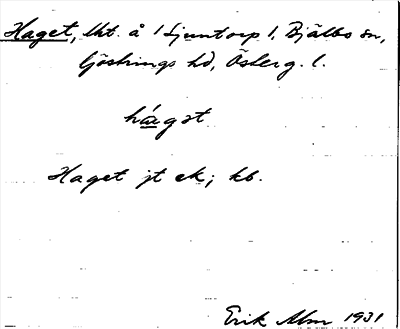 Haget, lht. å 1 Ljuntorp 1, Bjälbo sn,
Göstrings hd, Österg. l.
hágət
Haget jt ek; kb.
Erik Alm 1931